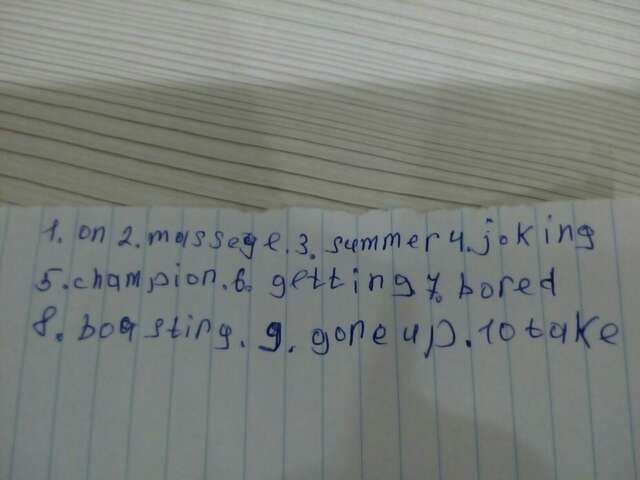 1. on 2. massege. 3. summer 4. joking
5. champion. 6. getting 7. bored
8. boasting. 9. gone up. 10 take